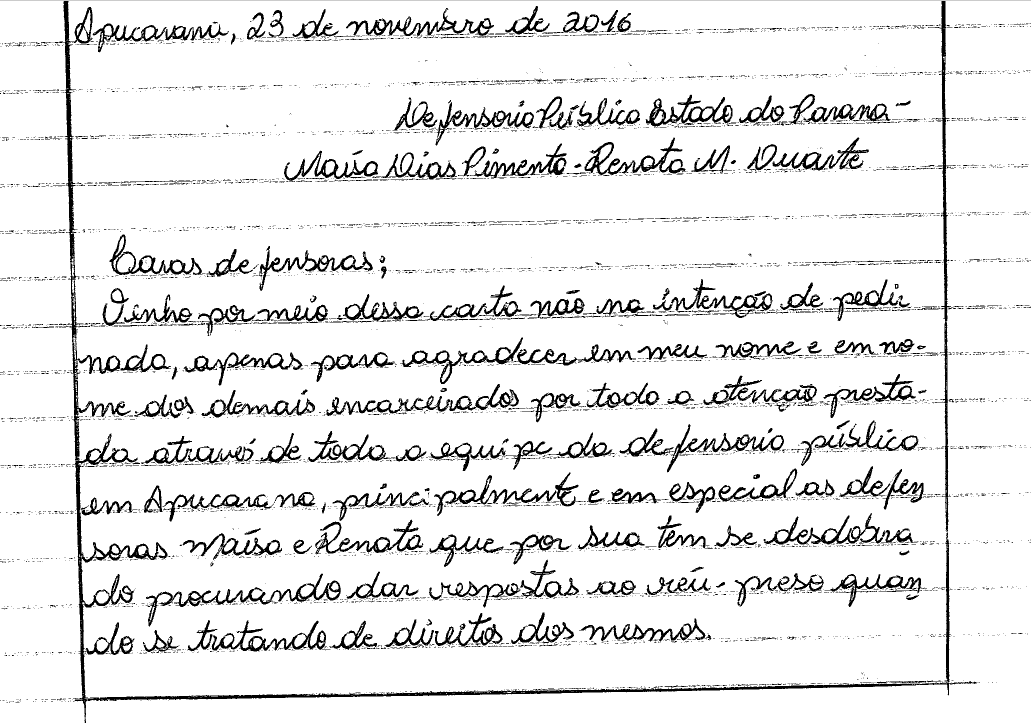 Apucarana, 23 de novembro de 2016
Defensoria Pública Estado do Parana-
Maísa Dias Pimenta - Renata M. Duarte
Caras defensoras;
Venho por meio dessa carta não na intenção de pedir
nada, apenas para agradecer em meu nome e em no-
me dos demais encarceirados por toda a atenção presta-
da através de toda a equipe da defensoria pública
em Apucarana, principalmente e em especial as defen
soras Maísa e Renata que por sua tem se desdobra
do procurando dar respostas ao réu-preso quan
do se tratando de direitos dos mesmos.